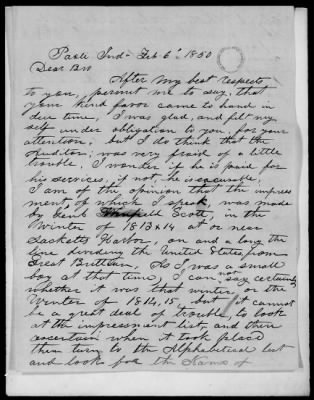 Paoli Ind - Feb 6' 1850
Dear Bro
After my best respects
to you, permit me to say, that
your kind favor came to hand in
due time, I was glad, and felt my
self under obligation to you, for your
attention; but I do think that the
Auditor, was very afraid of a little
trouble. I wonder if he is paid for
his services, if not, he is excusable.
I am of the opinion that the impress
ment, of which I speak, was made
by Genl Scott, in the
Winter of 1813 & 14 at or near
Sacketts Harbor, on and a long the
line dividing the United States, from
Great Brittain. As I was a small
boy at that time, I can not say certainly
whether it was that winter, or the
Winter of 1814, 15, but it cannot
be a great deal of trouble, to look
at the impressment list, and then
ascertain when it took place
then turn to the Alphabetical list
and look for the Name of